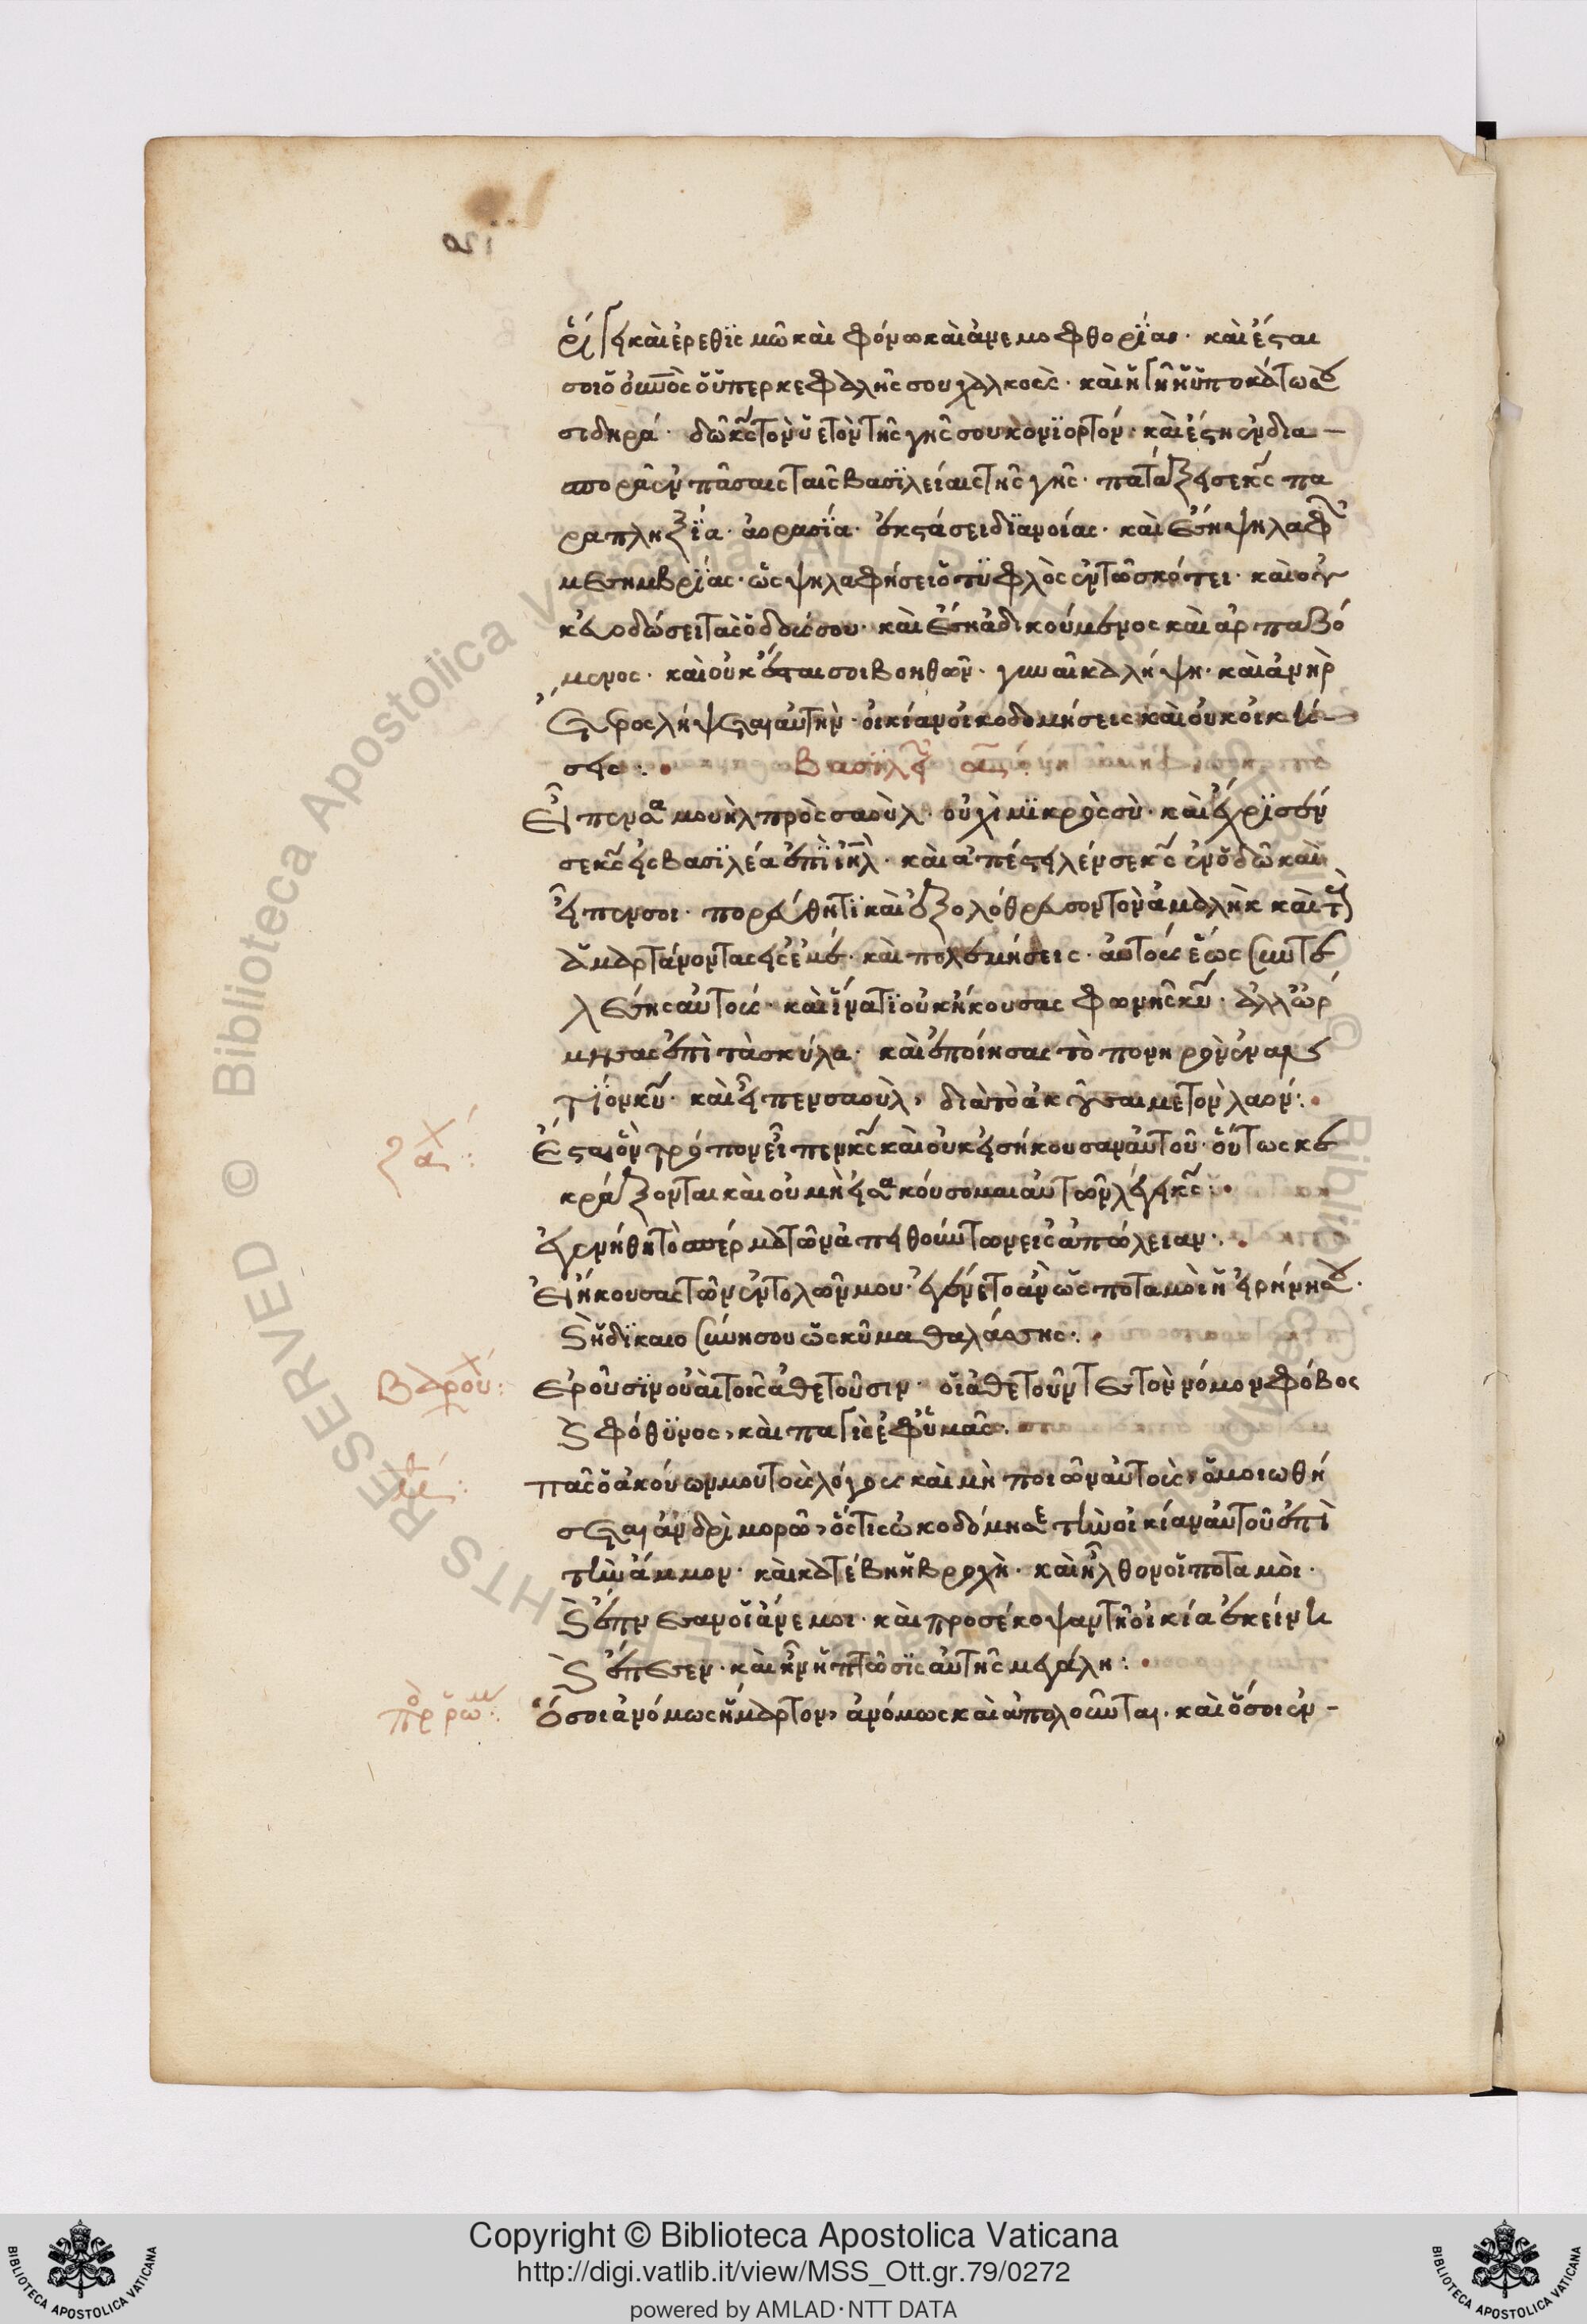 ρίγει καὶ ἐρεθϊσμῶ καὶ φόνω καὶ ἀνεμοφθορίᾳ· καὶ ἔσται
σοι ὁ οὐνὸς ὁ ὑπερ κεφαλῆς σου χαλκοῦς· καὶ ἡ γῆ ἡ ὑποκάτω σου
σιδηρά· δώη κς τὸν ὑετὸν τῆς γῆς σου κονϊορτόν· καὶ ἔση ἐν δια-
σπορᾶ ἐν πάσαις ταῖς βασϊλείαις τῆς γῆς· πατάξει σε κς πα
ραπληξϊα· ἀορασϊα· ἐκστάσει δϊανοίας· καὶ ἔση ψηλαφῶν
μεσημβρίας· ὡς ψηλαφήσει ὁ τϋφλὸς ἐν τῶ σκότει· καὶ οὐ
κ εὐοδώσει τὰς ὁδούς σου· καὶ ἔση ἀδικούμενος καὶ ἁρπαζό
μενος· καὶ οὐκ ἔσται σοι βοηθῶν· γυναῖκα λήψη· καὶ ἀνὴρ
ἕτερος λήψεται αὐτήν· οἰκίαν οἰκοδομήσεις καὶ οὐκ οἰκή-
σεις :·
Βασϊλειῶν α
Εἶπεν σαμουὴλ πρὸς σαούλ· οὐχὶ μϊκρὸς σὺ· καὶ ἔχρϊσέν
σε κς εἰς βασϊλέα ἐπὶ ιηλ· καὶ ἀπέστειλέν σε κς ἐν ὁδῶ καὶ
εἶπεν σοι· πορεύθητϊ καὶ ἐξολόθρευσον τὸν ἀμαλὴκ καὶ τοὺς
ἁμαρτάνοντας εἰς ἐμέ· καὶ πολεμήσεις· αὐτοὺς ἕως συντε
λέσης αὐτούς· καὶ ἵνα τϊ οὐκ ἤκουσας φωνῆς κυ· ἀλλ' ὥρ
μησας ἐπὶ τὰ σκύλα· καὶ ἐποίησας τὸ πονηρὸν ἐναν
τίον κυ· καὶ εἶπεν σαοὺλ, διὰ τὸ ἀκοῦσαι με τὸν λαόν :·
ζαχ
Ἔσται ὃν τρόπον εἶπεν κς καὶ οὐκ εἰσήκουσαν αὐτοῦ· οὕτως κε
κράξονται καὶ οὐ μὴ εἰσακούσομαι αὐτῶν λέγει κς :·
ἐγενήθη τὸ σπέρμα τῶν ἀπειθούντων εἰς ἀπώλειαν·.
Εἰ ἤκουσας τῶν ἐντολῶν μου· ἐγένετο ἂν ὡς ποταμὸς ἡ εἰρήνη σου·
καὶ ἡ δϊκαιοσύνη σου ὡς κῦμα θαλάσσης :·
Βαρουχ :
ἐροῦσϊν οὐαὶ τοῖς ἀθετοῦσιν· οἱ ἀθετοῦντες τὸν νόμον φόβος
καὶ βόθϋνος, καὶ παγὶς ἐφ' ὑμᾶς :·
πᾶς ὁ ἀκούων μου τοὺς λόγους καὶ μὴ ποιῶν αὐτοὺς, ὁμοιωθή
σεται ἀνδρὶ μορῶ, ὅστις ὠκοδόμησε τὴν οἰκίαν αὐτοῦ ἐπὶ
τὴν ἄμμον· καὶ κατέβη ἡ βροχὴ· καὶ ἦλθον οἱ ποταμοὶ·
καὶ ἔπνευσαν οἱ ἄνεμοι· καὶ προσέκοψαν τῆ οἰκία ἐκείνη
καὶ ἔπεσεν· καὶ ἦν ἡ πτῶσϊς αὐτῆς μεγάλη :·
πρ ρωμ :
Ὅσοι ἀνόμως ἥμαρτον, ἀνόμως καὶ ἀπολοῦνται· καὶ ὅσοι ἐν-
Copyright © Biblioteca Apostolica Vaticana
http://digi.vatlib.it/view/MSS_Ott.gr.79/0272
powered by AMLAD·NTT DATA